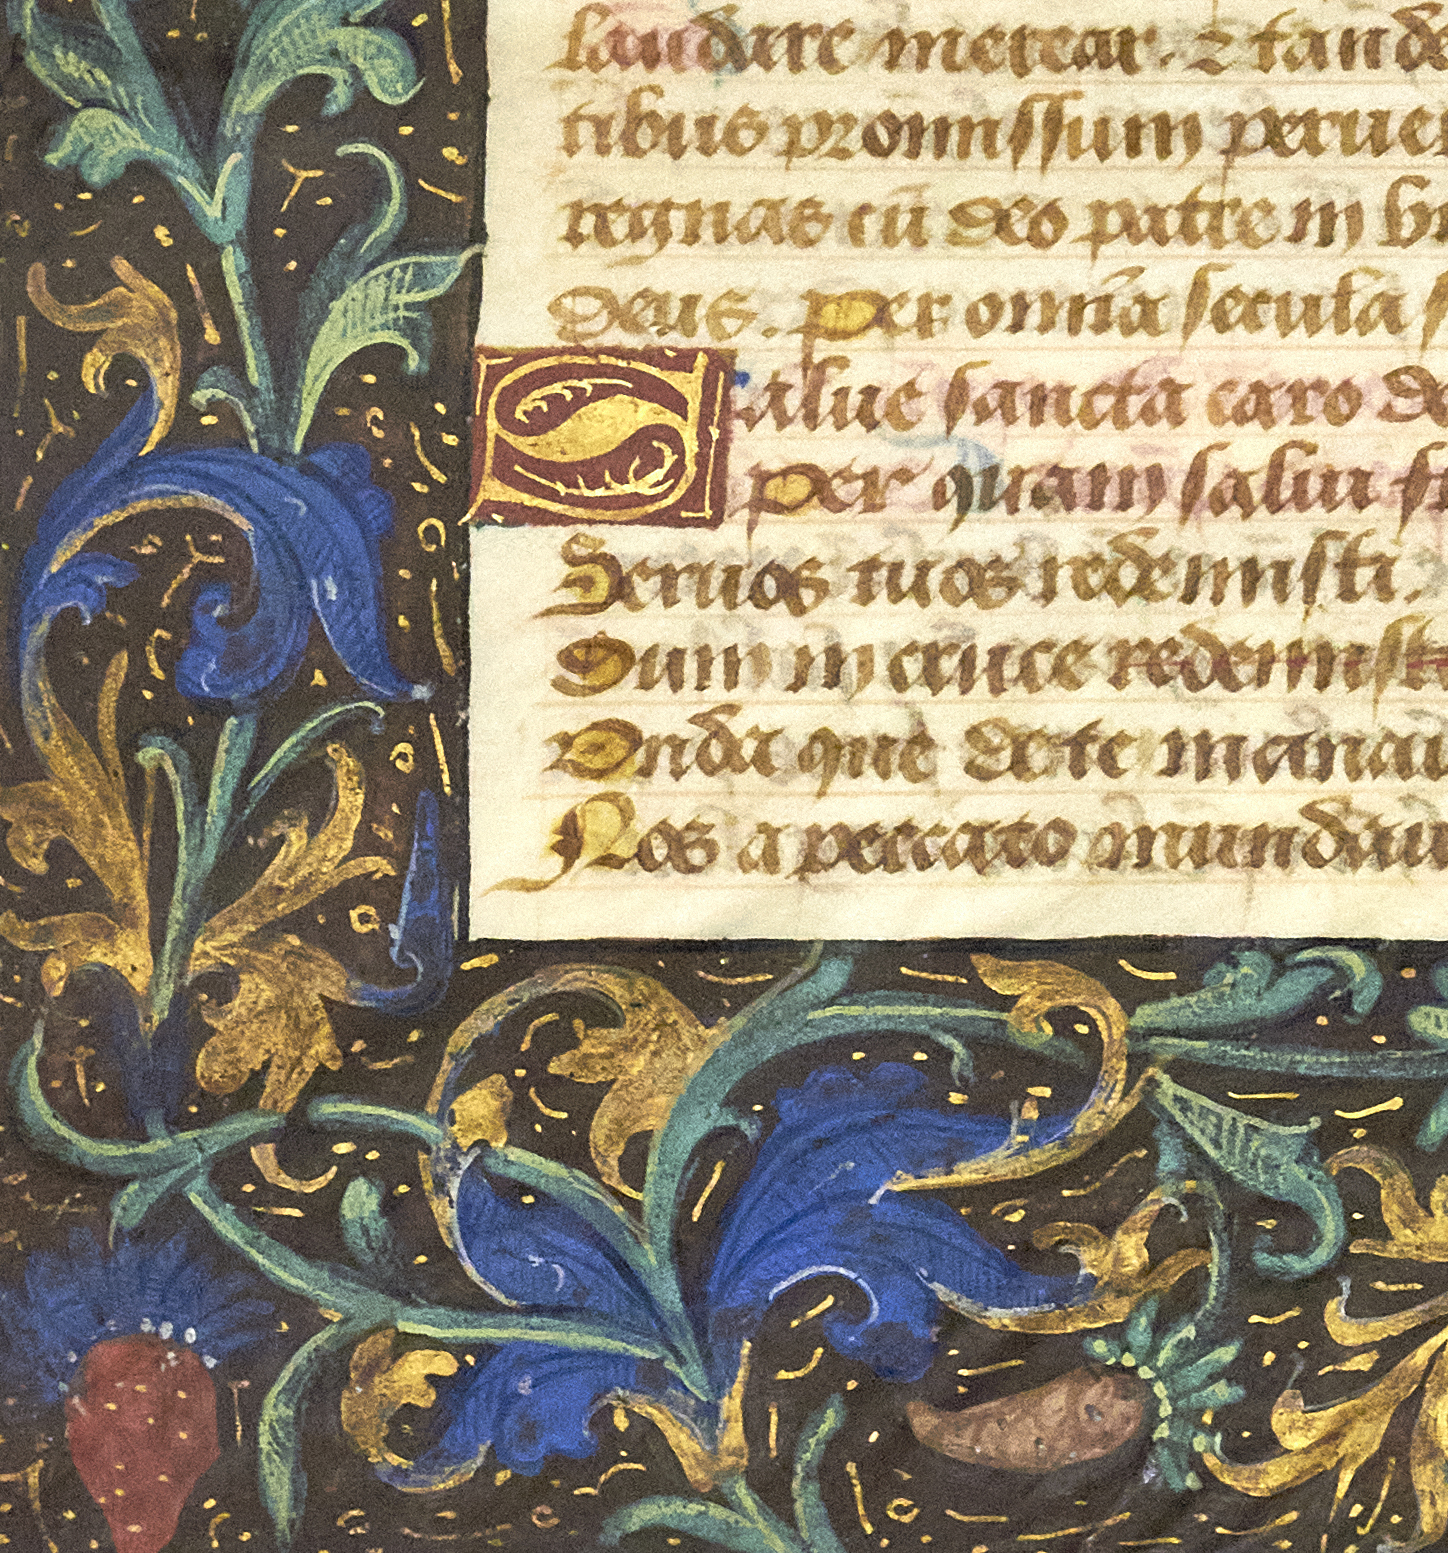 laudare merear. ⁊ tande
tibus promissum perue
regnas cū deo patre in v
deus. Per omīa secula s
Salue sancta caro de
per quam salui fi
Seruos tuos redemisti.
Dum in cruce redemist
Onda que de te manau
Nos a peccato mundau